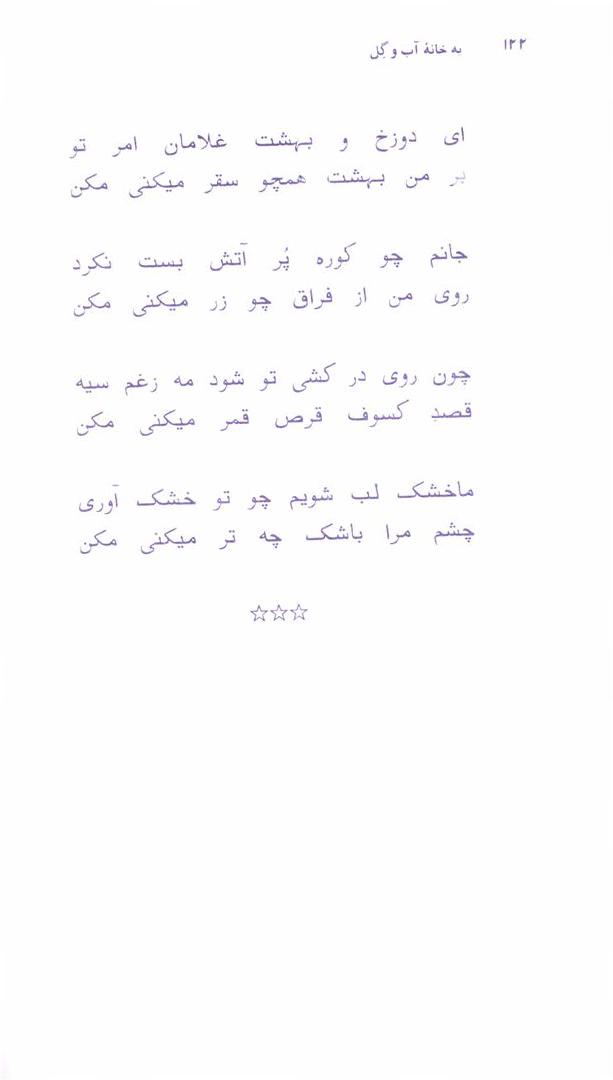 ۱۲۲ به خانهٔ آب و گِل
ای دوزخ و بهشت غلامان امر تو
بر من بهشت همچو سقر میکنی مکن
جانم چو کوره پُر آتش بست نکرد
روی من از فراق چو زر میکنی مکن
چون روی در کشی تو شود مه زغم سیه
قصدِ کسوف قرص قمر میکنی مکن
ماخشک لب شویم چو تو خشک آوری
چشم مرا باشک چه تر میکنی مکن
☆☆☆